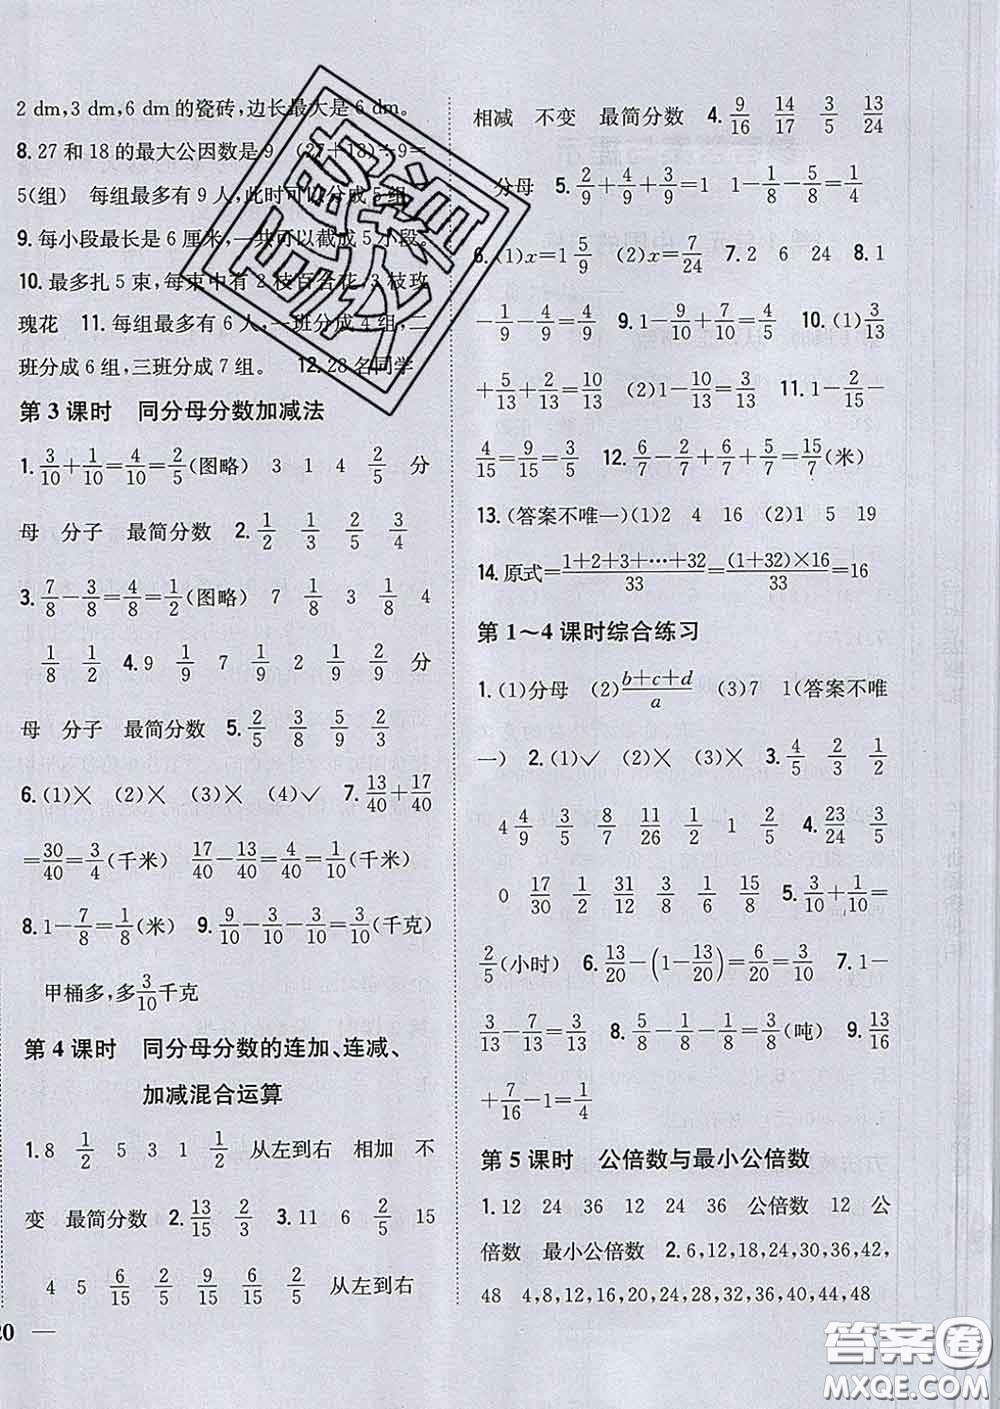 2 dm,3 dm,6 dm的瓷砖,边长最大是6 dm。
8.27和18的最大公因数是9 (27+18)÷9=
5(组) 每组最多有9人,此时可以分成5组
9.每小段最长是6厘米,一共可以截成5小段。
10.最多扎5束,每束中有2枝百合花,3枝玫
瑰花 11.每组最多有6人,一班分成4组,二
班分成6组,三班分成7组。 12.28名同学
第3课时 同分母分数加减法
1.3/10+1/10=4/10=2/5(图略) 3 1 4 2/5 分
母 分子 最简分数 2.1/2 1/3 2/5 3/4
3.7/8-3/8=4/8=1/2(图略) 7 1/8 3 1/8 4
1/8 1/2 4.9 1/9 7 1/9 2 2/9 分
母 分子 最简分数 5.2/5 3/8 5/9 2/9
6.(1)× (2)× (3)× (4)✓ 7.13/40+17/40
=30/40=3/4(千米) 17/40-13/40=4/40=1/10(千米)
8.1-7/8=1/8(米) 9.9/10-3/10-3/10=3/10(千克)
甲桶多,多3/10千克
第4课时 同分母分数的连加、连减、
加减混合运算
1.8 1/2 5 3 1 1/2 从左到右 相加 不
变 最简分数 2.13/15 2/3 3.11 6 2/5 15
4 5 6/15 2/5 9/15 6/15 2/5 从左到右
20
相减 不变 最简分数 4.9/16 14/17 3/5 13/24
分母 5.2/9+4/9+3/9=1 1-1/8-5/8=1/4
6.(1)x=1 5/9 (2)x=7/24 7.2 6 24 8.1
-1/9-4/9=4/9 9.1-9/10+7/10=4/5 10.(1)3/13
+5/13+2/13=10/13
11.1-2/15-
4/15=9/15=3/5 12.6/7-2/7+6/7+5/7=15/7(米)
13.(答案不唯一)(1)2 4 16 (2)1 5 19
14.原式=1+2+3+…+32/33=(1+32)×16/33=16
第1~4课时综合练习
1.(1)分母 (2)b+c+d/a (3)7 1(答案不唯
一) 2.(1)✓ (2)× (3)× 3.4/5 2/3 1/2
4 4/9 3/5 8/7 11/26 1/2 1 2/5 4.23/24 3/5
0 17/30 1/2 31/12 3/8 1/6 15/8 5.3/10+1/10=
2/5(小时) 6.13/20-(1-13/20)=6/20=3/10 7.1-
3/13-7/13=3/13 8.5/8-1/8-1/8=3/8(吨) 9.13/16
+7/16-1=1/4
第5课时 公倍数与最小公倍数
1.12 24 36 12 24 36 公倍数 12 公
倍数 最小公倍数 2.6,12,18,24,30,36,42,
48 4,8,12,16,20,24,28,32,36,40,44,48
答案圈
MXQE.COM